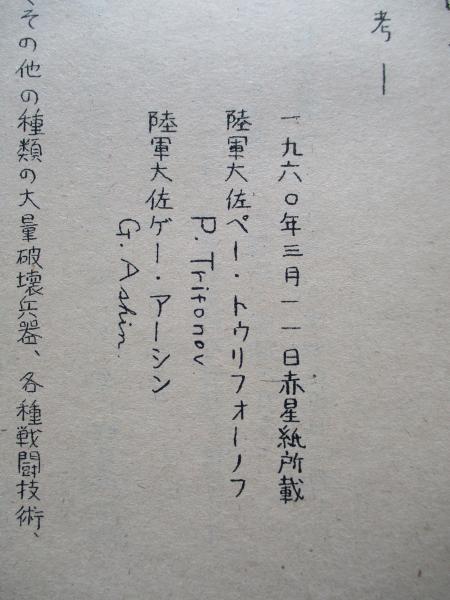 考ー
一九六〇年三月一一日赤星紙所載
陸軍大佐ペー・トゥリフォーノフ
P. Trifonov
陸軍大佐ゲー・アーシン
G. Ashin.
その他の種類の大量破壊兵器、各種戦闘技術、